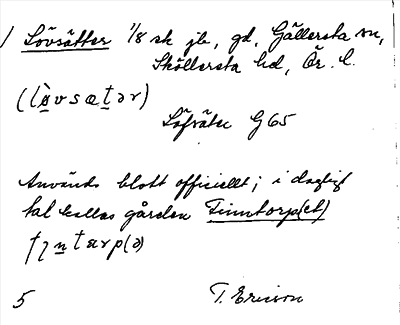 Lövsätter 1/8 sk jb, gd, Gällersta sn,
Sköllersta hd, Ör. l.
(lø̀vsætər)
Löfsäter G65
Används blott officiellt; i dagligt
tal kallas gården Finntorp(et)
5 T. Ericson